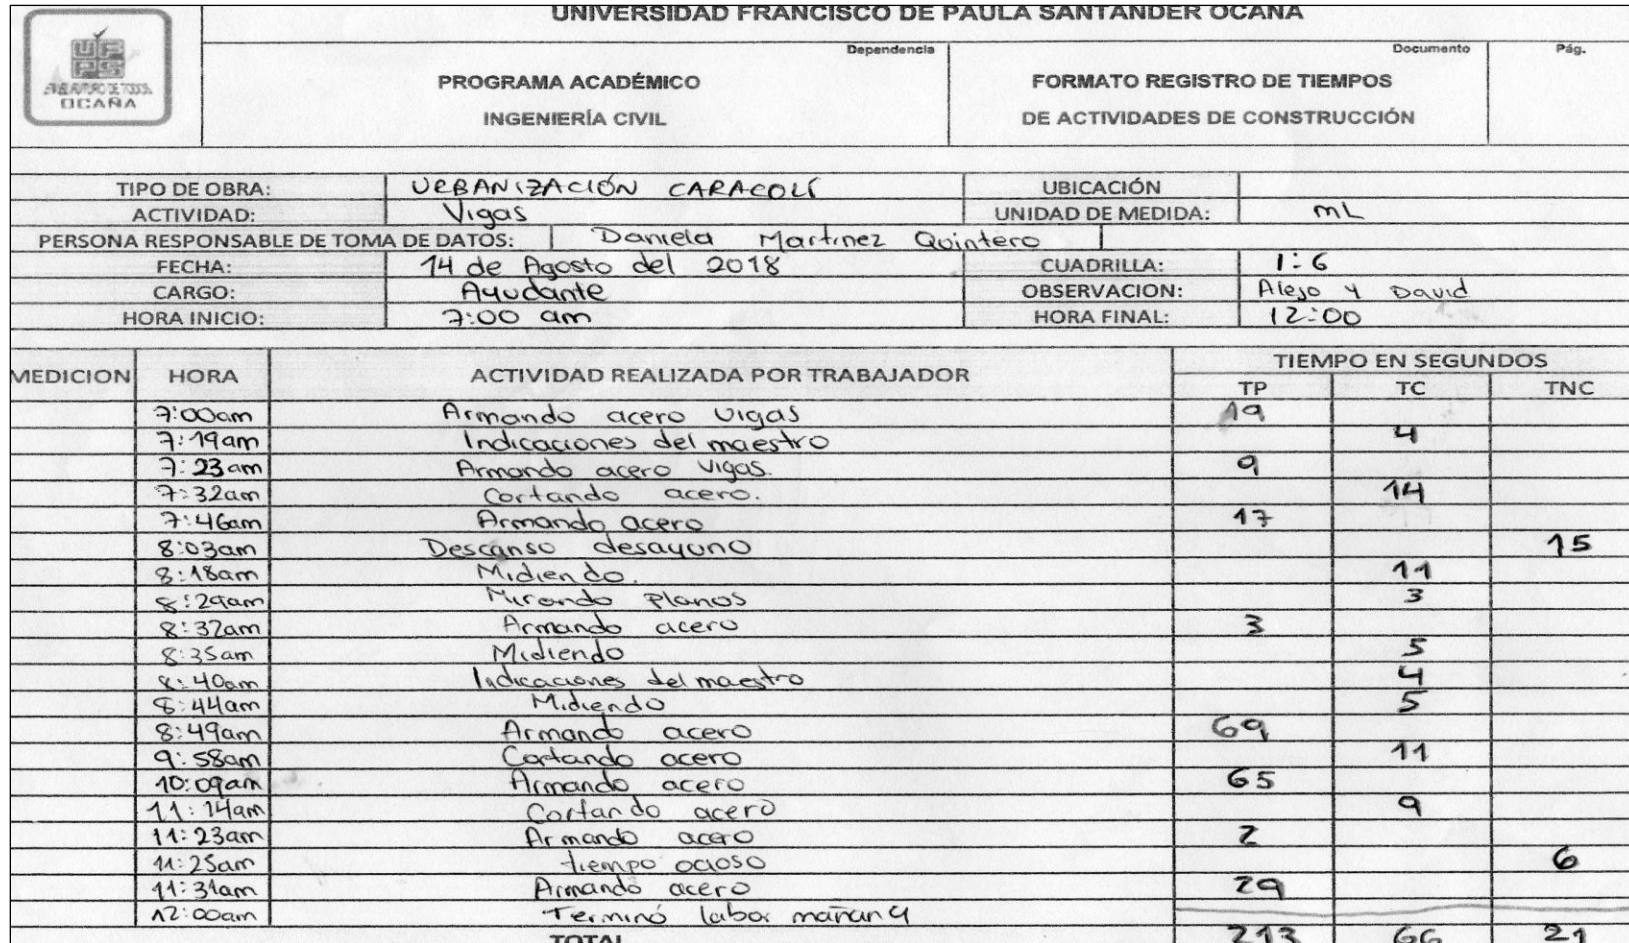 UNIVERSIDAD FRANCISCO DE PAULA SANTANDER OCAÑA
UFPS
OCAÑA
Dependencia Documento Pág.
PROGRAMA ACADÉMICO FORMATO REGISTRO DE TIEMPOS
INGENIERÍA CIVIL DE ACTIVIDADES DE CONSTRUCCIÓN
TIPO DE OBRA: URBANIZACIÓN CARACOLÍ UBICACIÓN
ACTIVIDAD: Vigas UNIDAD DE MEDIDA: mL
PERSONA RESPONSABLE DE TOMA DE DATOS: Daniela Martinez Quintero
FECHA: 14 de Agosto del 2018 CUADRILLA: 1:6
CARGO: Ayudante OBSERVACION: Alejo y David
HORA INICIO: 7:00 am HORA FINAL: 12:00
MEDICION HORA ACTIVIDAD REALIZADA POR TRABAJADOR TIEMPO EN SEGUNDOS
TP TC TNC
7:00am Armando acero vigas 19
7:19am Indicaciones del maestro 4
7:23am Armando acero vigas. 9
7:32am Cortando acero. 14
7:46am Armando acero 17
8:03am Descanso desayuno 15
8:18am Midiendo. 11
8:29am Mirando Planos 3
8:32am Armando acero 3
8:35am Midiendo 5
8:40am Indicaciones del maestro 4
8:44am Midiendo 5
8:49am Armando acero 69
9:58am Cortando acero 11
10:09am Armando acero 65
11:14am Cortando acero 9
11:23am Armando acero 2
11:25am tiempo ocioso 6
11:31am Armando acero 29
12:00am Terminó labor mañana
TOTAL 213 66 21